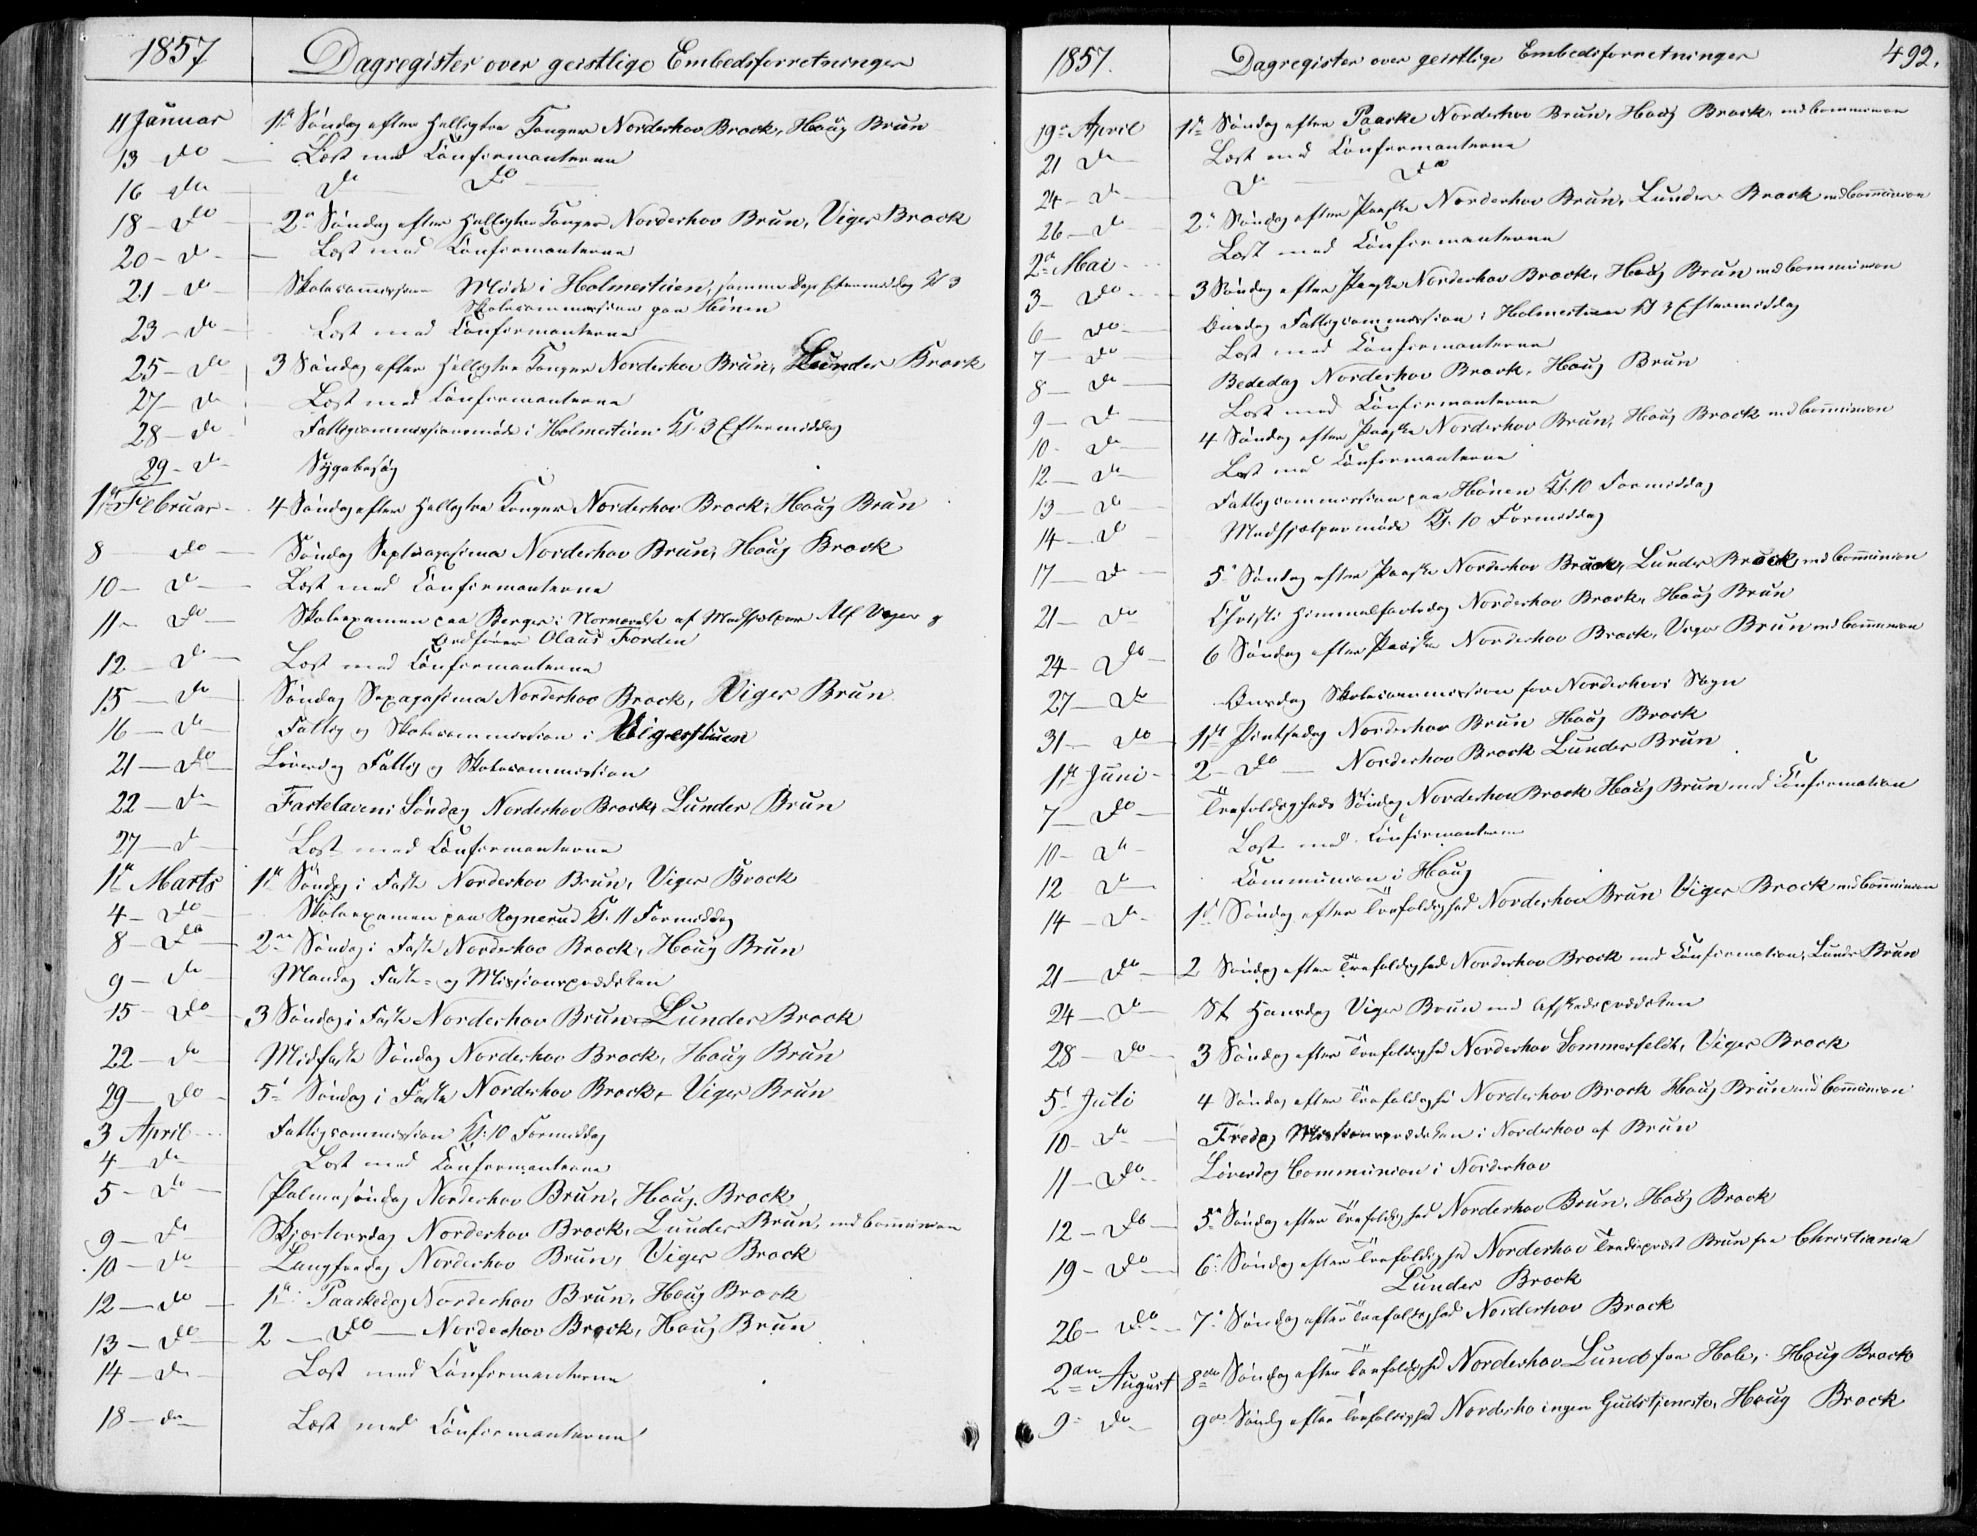 1857
Dagregister over geistlige Embedsforretninger
11 Januar 1ste Søndag efter Helligtre Konger Norderhov Brock, Houg Brun
13 - do - Læst med Confirmanterne
16 - do D° D°
18 - D° - 2den Søndag efter Helligtre Konger Norderhov Brun, Viger Brock
20 - D° - Læst med Confirmanterne
21 - D° Skolecommission Møde i Holmestuen, samme Dags Eftermiddag Kl 3
Skolecommission paa Hønen
23 - do - Læst med Confirmanterne
25 - do 3 Søndag efter Helligtre Konger Norderhov Brun, Lunder Brock
27 - do Læst med Confirmanterne
28 - do Fattigcommissionsmøde i Holmestuen Kl. 3 Eftermiddag
29 - D° Sygebesøg
1ste Februar - 4 Søndag efter Helligtre Konger Norderhov Brock, Houg Brun
8 do - Søndag Septuagesima Norderhov Brun, Houg Brock
10 - D° - Læst med Confirmanterne
11 - D° - Skoleexamen paa Berger i Nærværelse af Medhjelper Alf Veger og
Ordfører Olaus Forden
12 - D° - Læst med Confirmanterne
15 - D° Søndag Sexagesima Norderhov Brock, Viger Brun
16 - D° - Fattig og Skolecommission i Vigerstuen
21 - D° Løverdag Fattig og Skolecommission
22 - D° Fastelavens Søndag Norderhov Brock, Lunder Brun
27 - D° Læst med Confirmanterne
1ste Marts 1ste Søndag i Faste Norderhov Brun, Viger Brock
4 - D° Skoleexamen paa Rognerud Kl. 11 Formiddag
8 - D° 2den Søndag i Faste Norderhov Brock, Houg Brun
9 - D° Mandag Faste- og Missionsprædiken
15 - D° 3 Søndag i Faste Norderhov Brun Lunder Brock
22 - D° Midfaste Søndag Norderhov Brock, Houg Brun
29 - D° - 5te Søndag i Faste Norderhov Brock, Viger Brun
3 April - Fattigcommission Kl. 10 Formiddag
4 - D° Læst med Confirmanterne
5 - D° Palmesøndag Norderhov Brun, Houg. Brock
9 - D° Skjærtorsdag Norderhov Brock, Lunder Brun, med Communion
10 - D° Langfredag Norderhov Brun, Viger Brock
12 - do 1ste Paaskedag Norderhov Brun, Houg Brock
13 - D° 2 - D° - Norderhov Brock, Houg Brun
14 - D° Læst med Confirmanterne
18 - do Læst med Confirmanterne
1857.
Dagregister over geistlige Embedsforretninger
492.
19de April 1ste Søndag efter Paaske Norderhov Brun, Houg Brock, med Communion
21 D° Læst med Confirmanterne
24 - D° D° D°
26 - D° 2den Søndag efter Paaske Norderhov Brun, Lunder Brock med Communion
2den Mai Læst med Confirmanterne
3 - D° 3 Søndag efter Paaske Norderhov Brock, Houg Brun med Communion
6 - D° Onsdag Fattigcommission i Holmestuen Kl 3 Eftermiddag
7 - D° Læst med Confirmanterne
8 - D° Bededag Norderhov Brock, Houg Brun
9 - D° Læst med Confirmanterne
10 - D° 4 Søndag efter Paaske Norderhov Brun, Houg Brock med Communion
12 - D° Læst med Confirmanterne
13 - D° Fattigcommission paa Hønen Kl. 10 Formiddag
14 - D° Medhjelpermøde Kl. 10 Formiddag
17 - D° 5te Søndag efter Paaske Norderhov Brun, Lunder Brock, med Communion
21 - D° Christi Himmelfartsdag Norderhov Brock, Houg Brun
24 - D° 6 Søndag efter Paaske Norderhov Brock, Viger Brun med Communion
27 - D° Onsdag Skolecommission for Norderhovs Sogn
31 - D° 1ste Pintsedag Norderhov Brun Houg Brock
1ste Juni - 2 - D° - Norderhov Brock Lunder Brun
7 - D° - Trefoldigheds Søndag Norderhov Brock Houg Brun med Confirmation
10 - D° - Læst med Confirmanterne
12 D° Communion i Houg
14 - D° 1ste Søndag efter Trefoldighed Norderhov Brun Viger Brock med Communion
21 - D° 2 Søndag efter Trefoldighed Norderhov Brock med Confirmation, Lunder Brun
24 - D° St Hansdag Viger Brun med Afskedsprædiken
28 - D° 3 Søndag efter Trefoldighed Norderhov Sommerfeldt, Viger Brock
5te Juli 4 Søndag efter Trefoldighed Norderhov Brock Houg Brun med Communion
10 - D° Fredag Missionsprædiken i Norderhov af Brun
11 - D° Løverdag Communion i Norderhov
12 - D° 5te Søndag efter Trefoldighed Norderhov Brun, Houg Brock
19 - D° 6te Søndag efter Trefoldighed Norderhov Brun fra Christiania
Lunder Brock
26 - D° 7de Søndag efter Trefoldighed Norderhov Brock
2den August 8de Søndag efter Trefoldighed Norderhov Lund fra Hole, Houg Brock
9 - D° 9de Søndag efter Trefoldighed Norderho ingen Gudstjeneste, Houg Brock